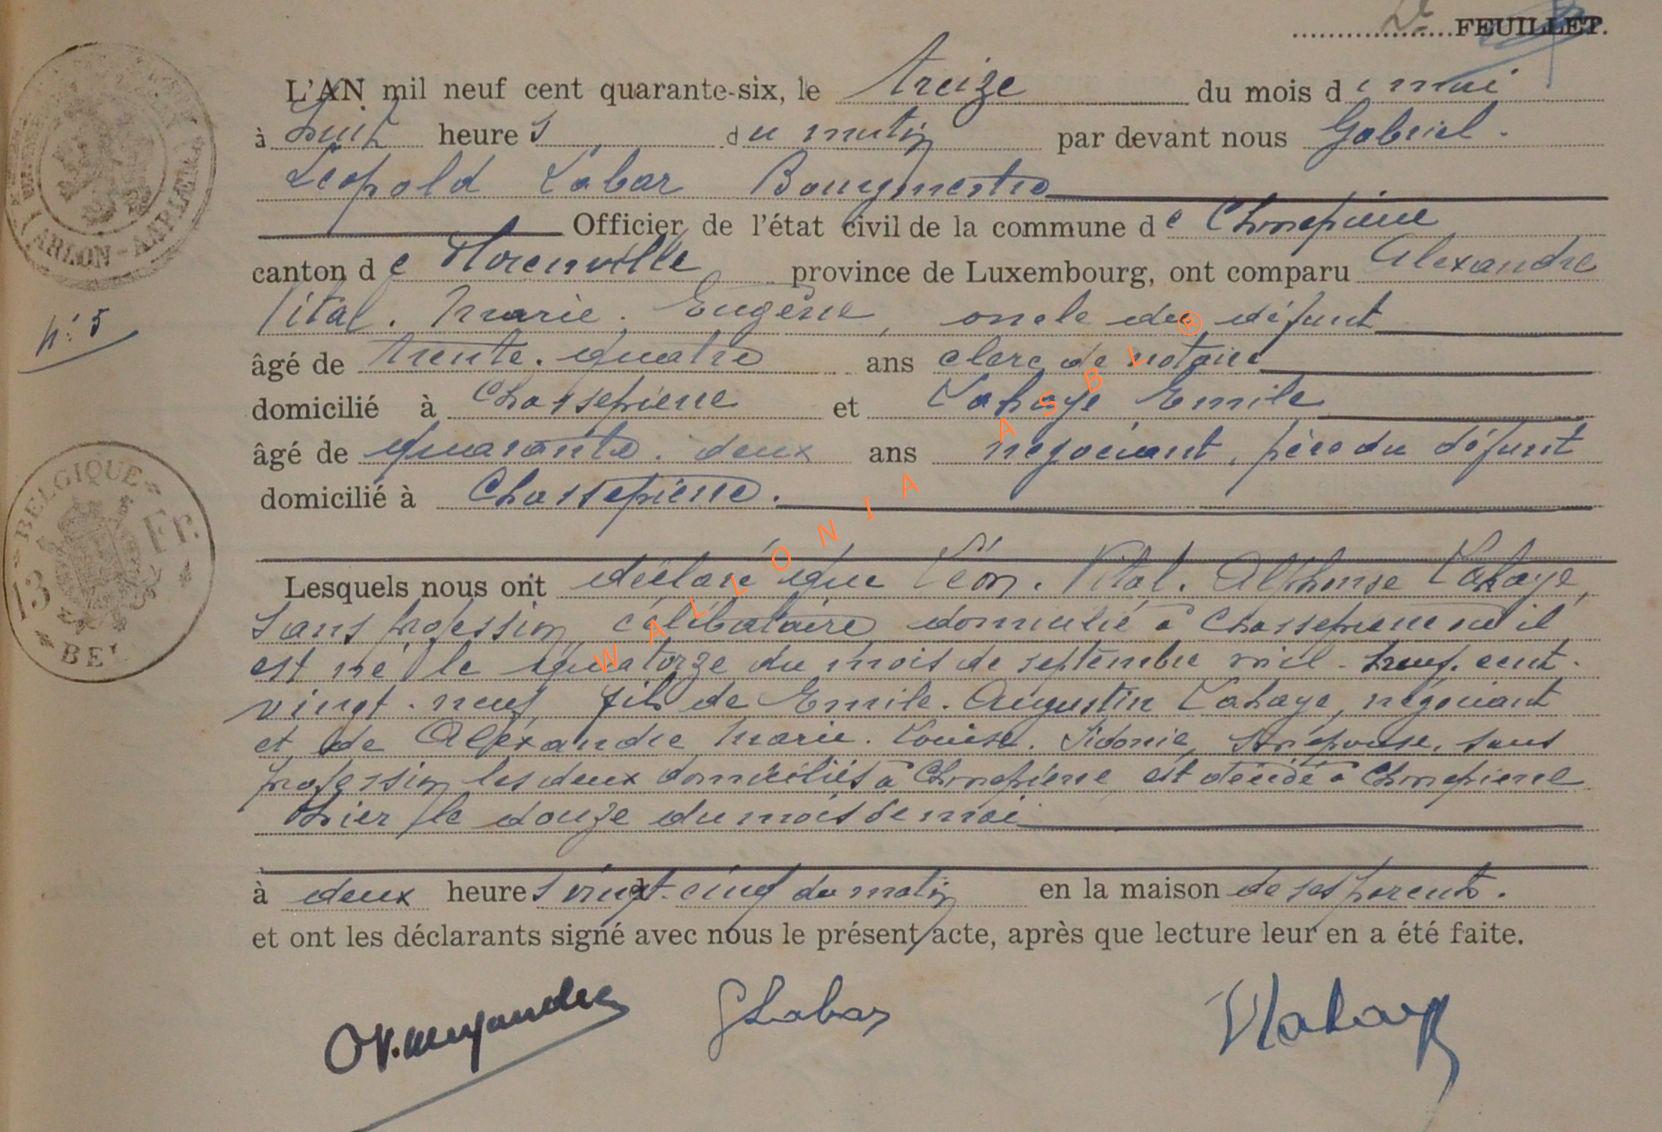 2e FEUILLET.
L'AN mil neuf cent quarante-six, le treize du mois de mai
à huit heures du matin par devant nous Gabriel
Léopold Labar Bourgmestre
Officier de l'état civil de la commune de Chassepierre
canton de Florenville province de Luxembourg, ont comparu Alexandre
Vital. Marie. Eugène, oncle du défunt
âgé de trente. quatre ans clerc de notaire
domicilié à Chassepierre et Lahaye Emile
âgé de quarante. deux ans negociant, père du défunt
domicilié à Chassepierre.
Lesquels nous ont déclaré que Léon. Vital. Alphonse Lahaye,
sans profession, célibataire domicilié à Chassepierre où il
est né le quatorze du mois de septembre mil. neuf. cent.
vingt. neuf, fils de Emile. Augustin Lahaye, négociant
et de Alexandre Marie. Louise. Sidonie, son épouse, sans
profession les deux domiciliés à Chassepierre, est décédé à Chassepierre
hier le douze du mois de mai
à deux heures vingt. cinq du matin en la maison de ses parents.
et ont les déclarants signé avec nous le présent acte, après que lecture leur en a été faite.
GLabar
Lahaye
N° 5
ARLON - AARLEN
BELGIQUE
13 Fr.
BEL
WALLONIA ASBL ®